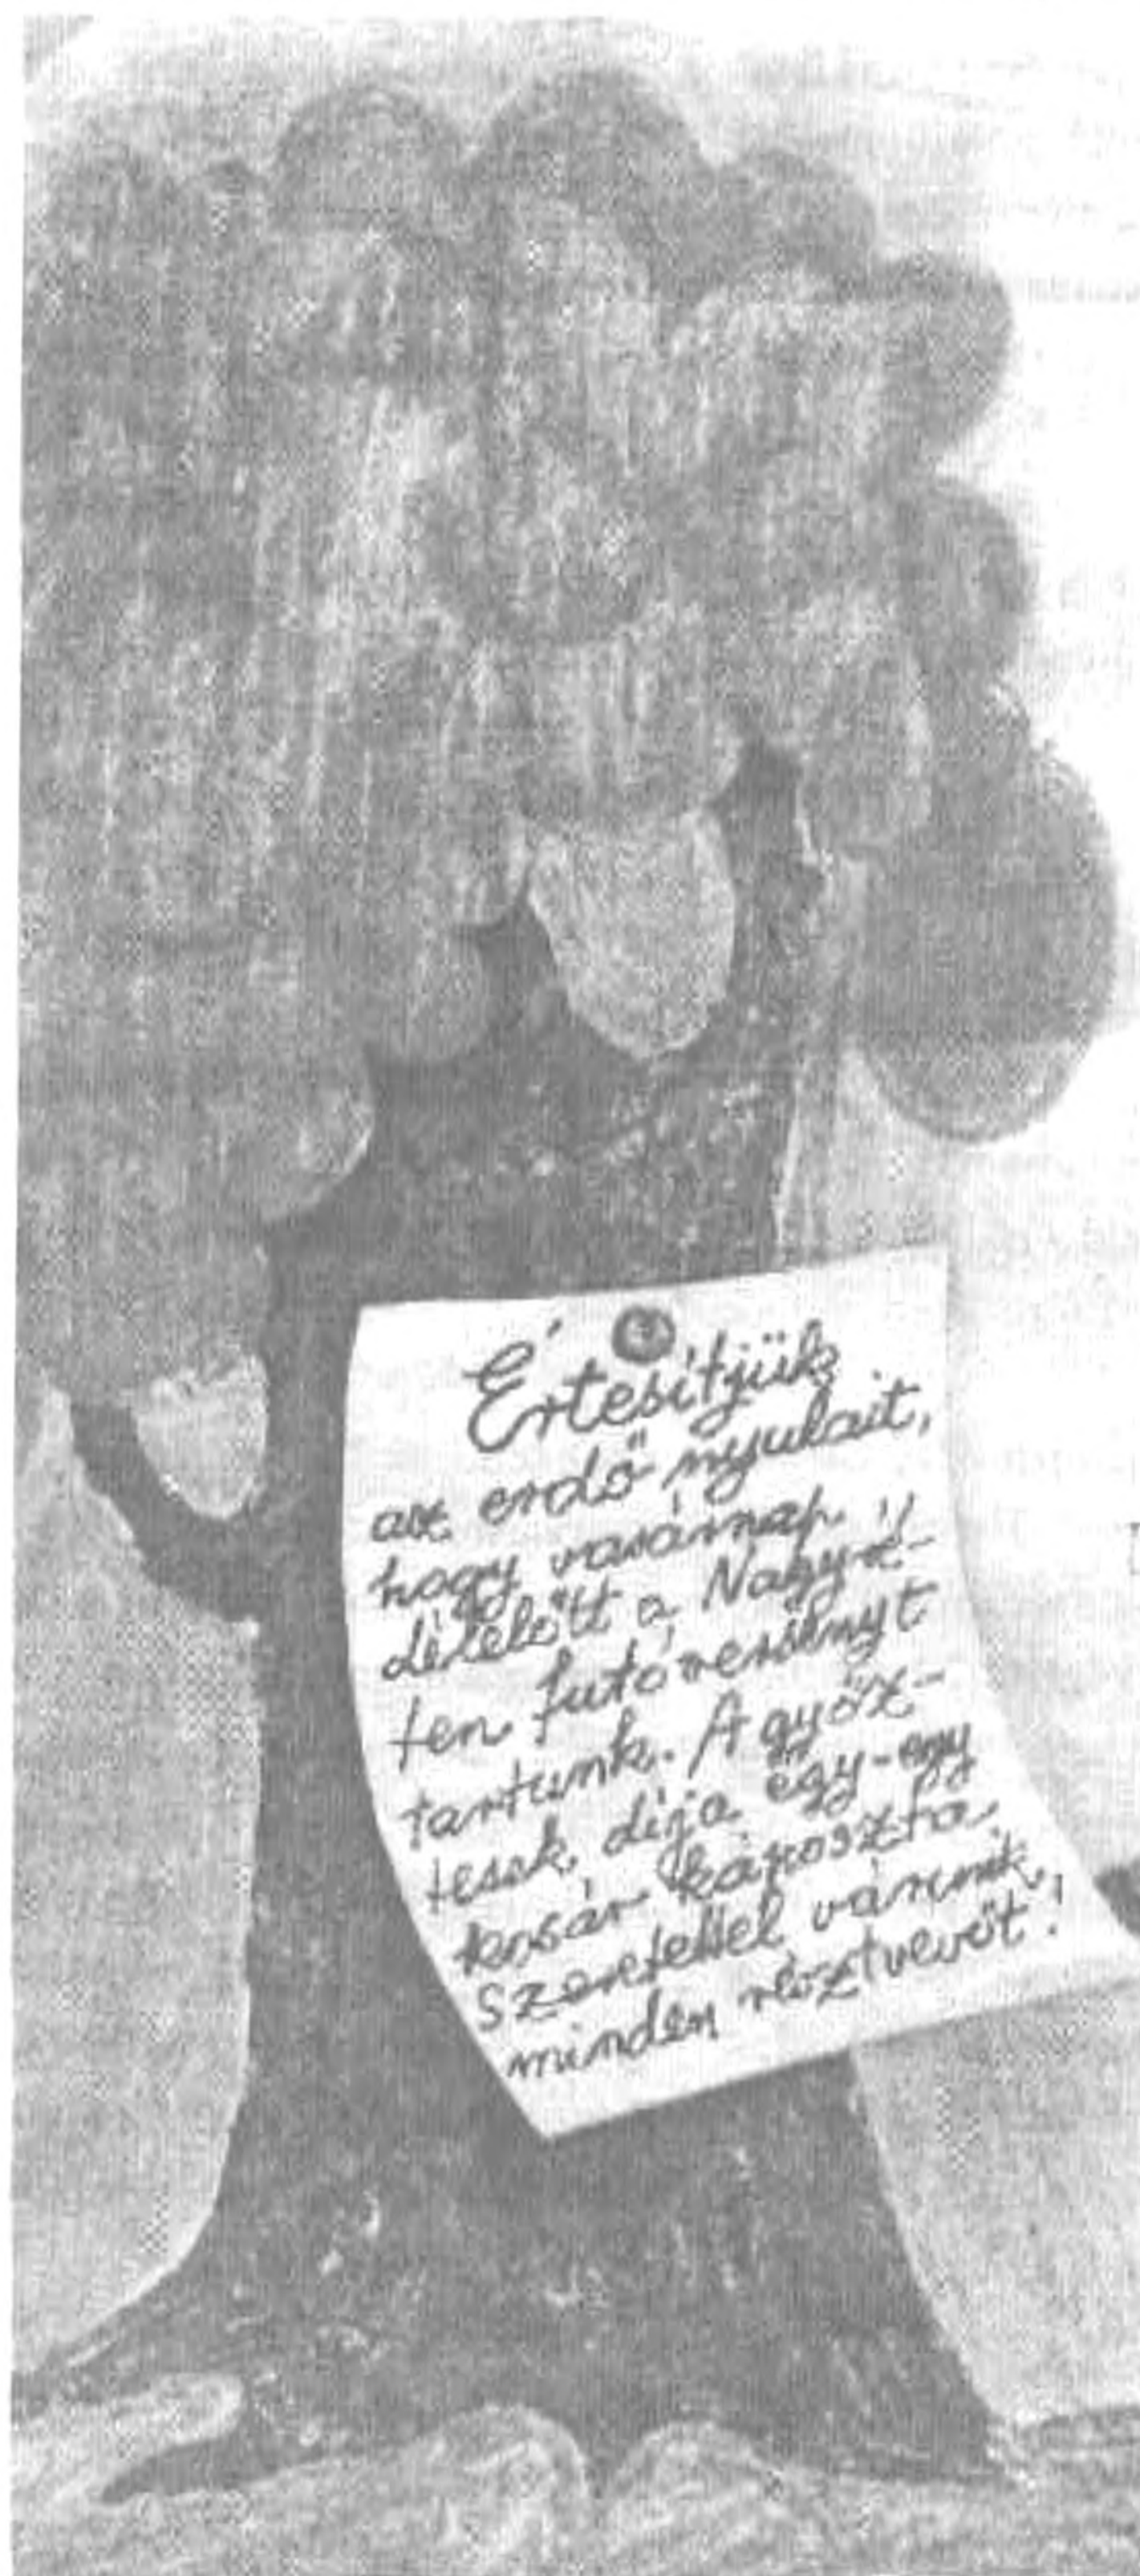 Értesítjük
az erdő nyulait,
hogy vasárnap
délelőtt a Nagyré-
ten futóversenyt
tartunk. A győz-
tesek díja egy-egy
kosár káposzta.
Szeretettel várunk
minden résztvevőt!